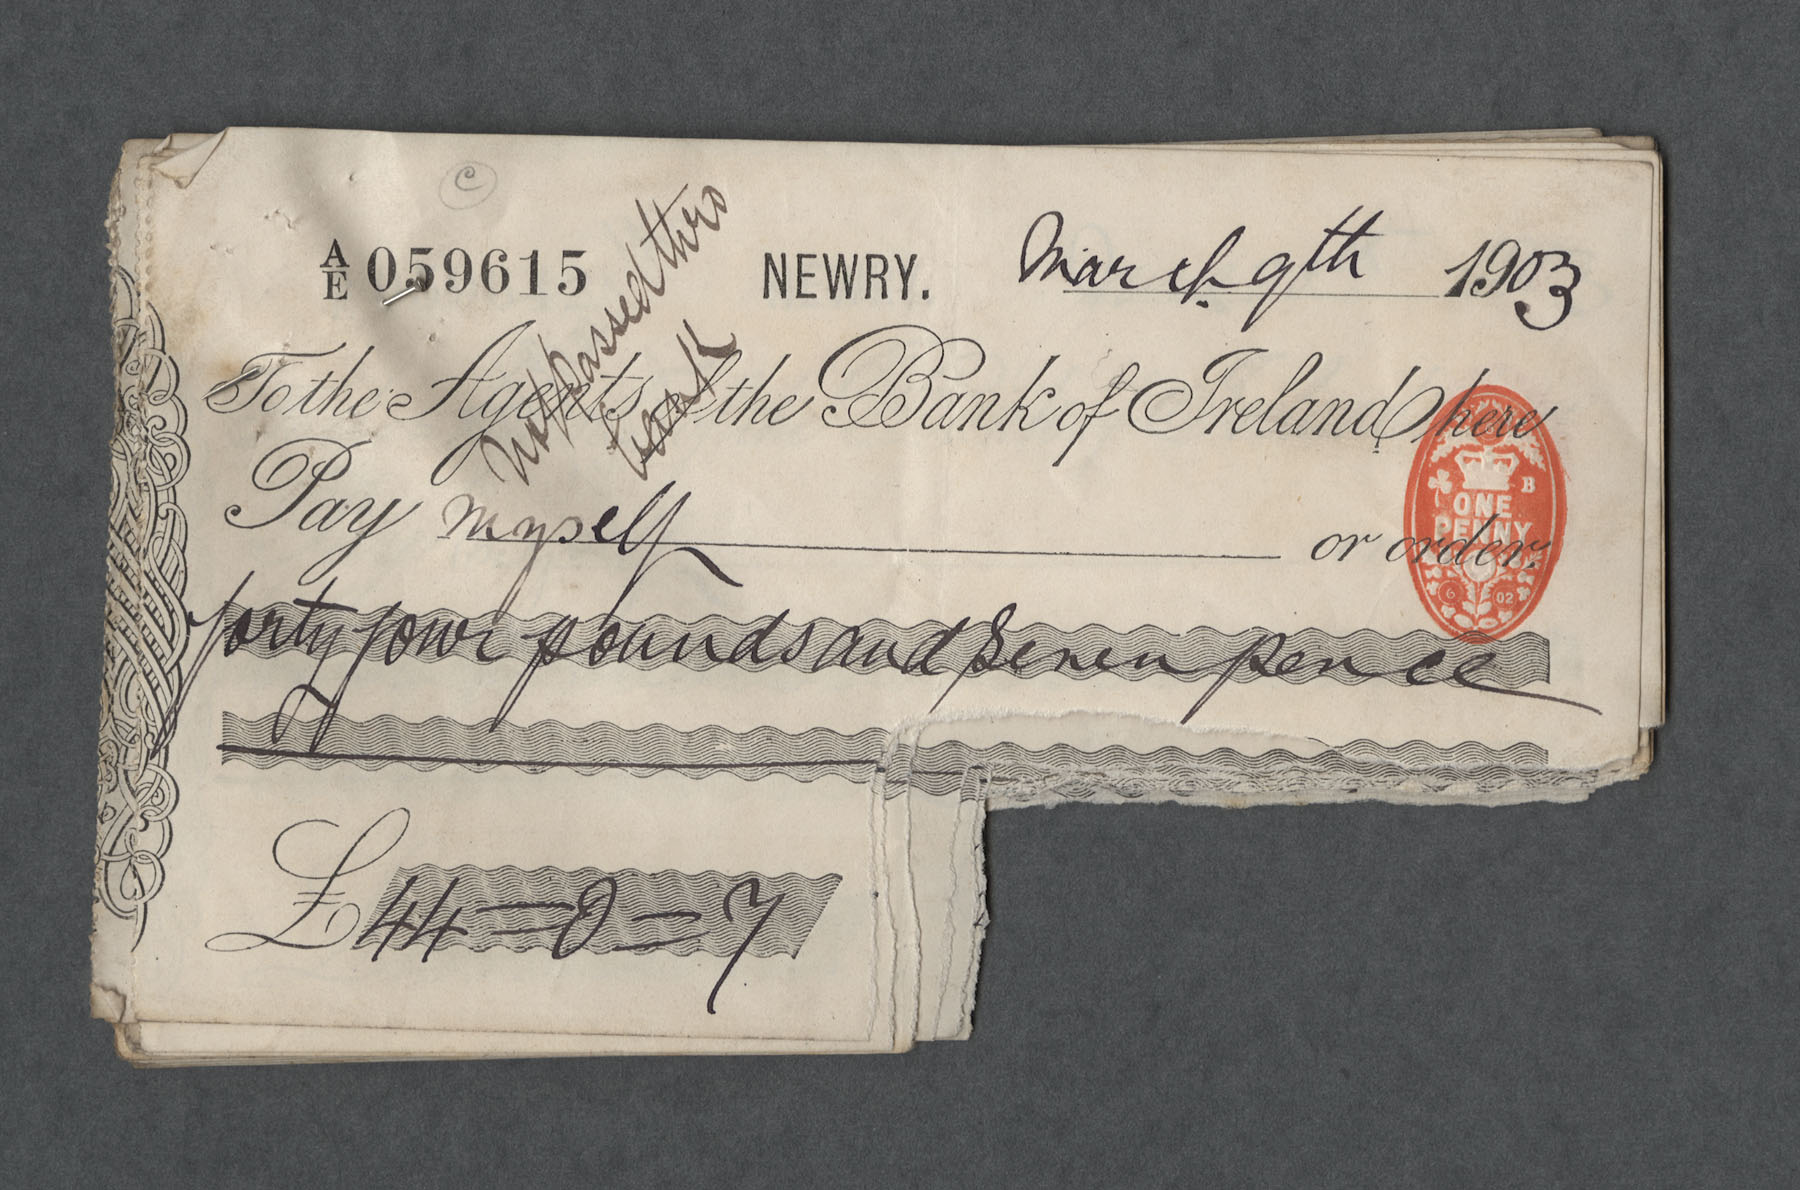 C
A/E 059615 NEWRY. March 9th 1903
not passed thro
bank
To the Agents of the Bank of Ireland here
Pay myself or order.
forty four pounds and seven pence
£44=0=7
B
ONE
PENNY
6 02